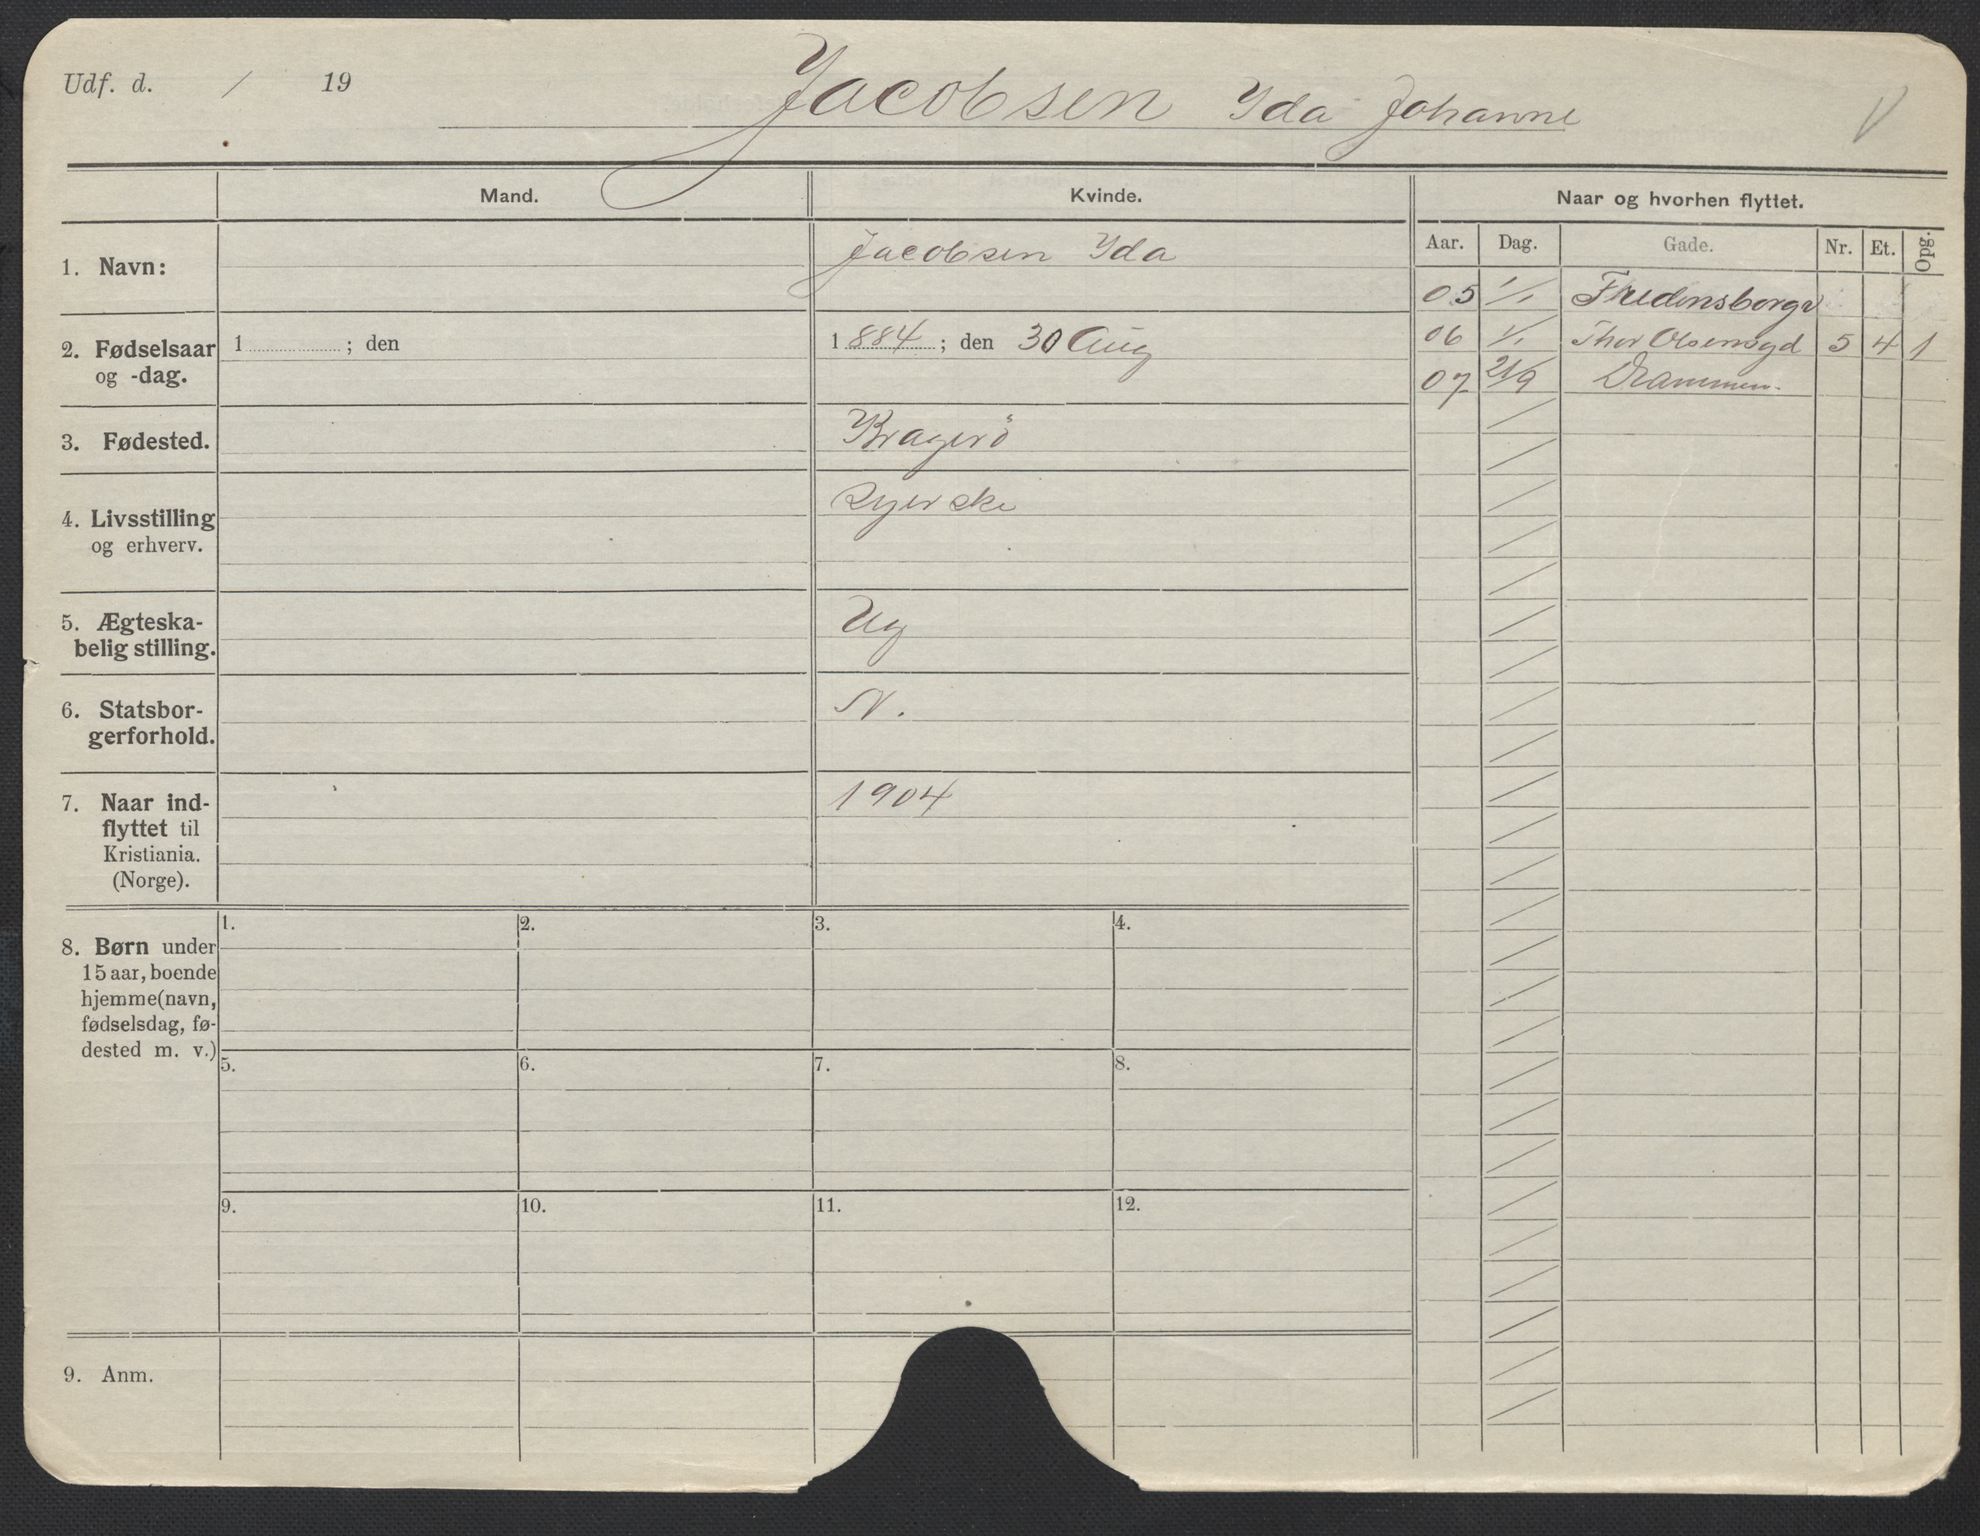 Udf. d. / 19
Jacobsen Yda Johanne
V
Mand.
Kvinde.
Naar og hvorhen flyttet.
Aar. Dag. Gade. Nr. Et. Opg.
1. Navn:
Jacobsen Yda
05 1/1 Fredensborgv
2. Fødselsaar
og -dag.
1 ; den
1884 ; den 30 Aug
06 1/1 Thor Olsensgd 5 4 1
07 21/9 Drammen.
3. Fødested.
Kragerø
4. Livsstilling
og erhverv.
Syerske
5. Ægteska-
belig stilling.
Ug
6. Statsbor-
gerforhold.
N.
7. Naar ind-
flyttet til
Kristiania.
(Norge).
1904
8. Børn under
15 aar, boende
hjemme (navn,
fødselsdag, fø-
dested m. v.)
1. 2. 3. 4.
5. 6. 7. 8.
9. 10. 11. 12.
9. Anm.